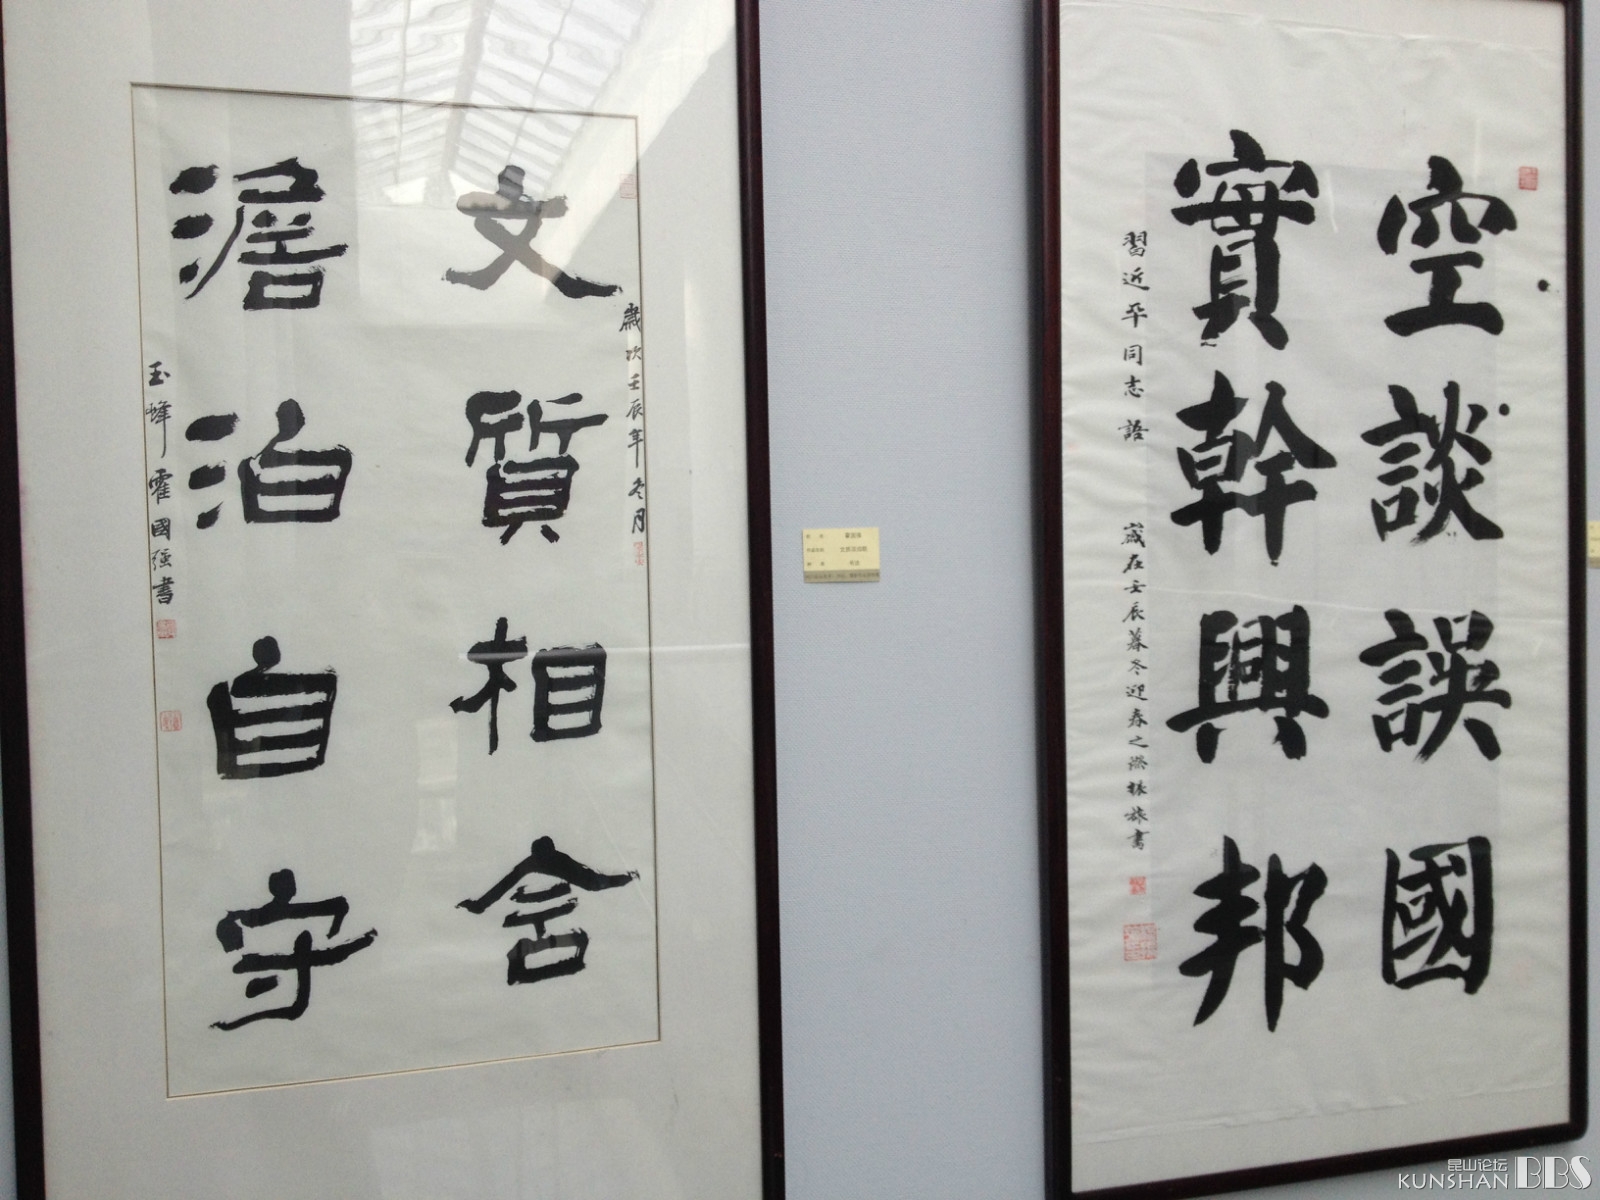 文質相含
澹泊自守
歲次壬辰年冬月
玉峰霍國强書
空談誤國
實幹興邦
習近平同志語
歲在壬辰暮冬迎春之際振旅書
昆山论坛
KUNSHAN BBS